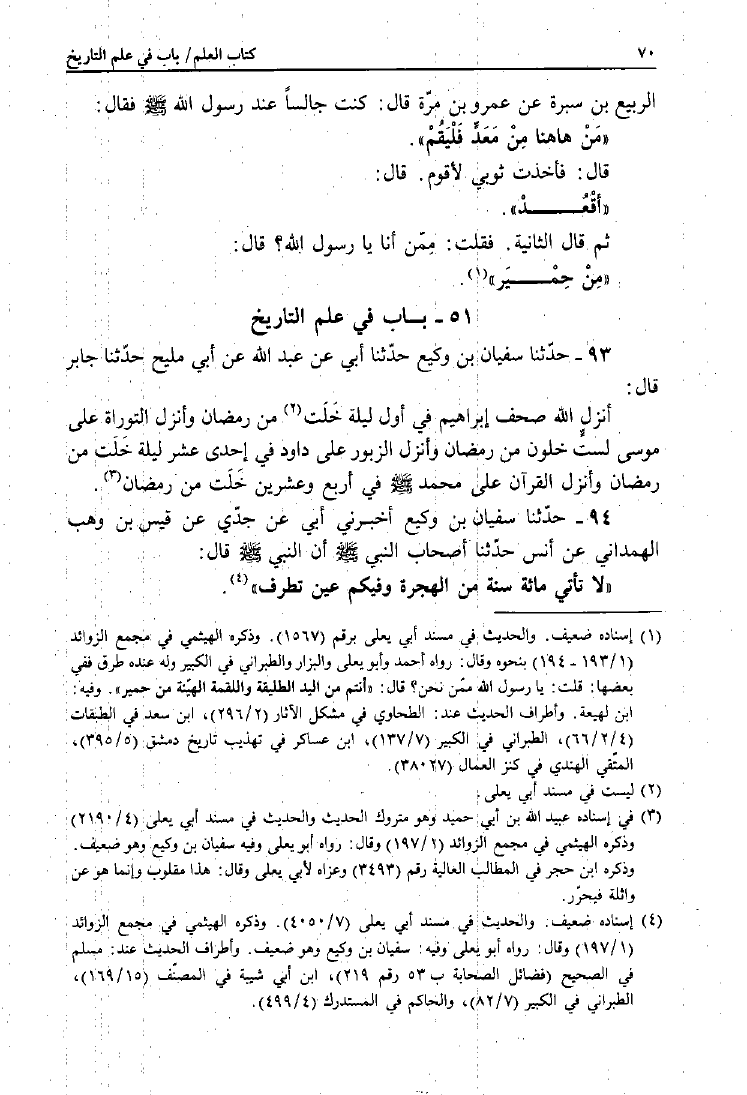 ٧٠ كتاب العلم/ باب في علم التاريخ
الربيع بن سبرة عن عمرو بن مرّة قال: كنت جالساً عند رسول الله ﷺ فقال:
«مَنْ هاهنا مِنْ مَعَدٍّ فَلْيَقُمْ».
قال: فأخذت ثوبي لأقوم. قال:
«أقْعُـــــدْ».
ثم قال الثانية. فقلت: مِمّن أنا يا رسول الله؟ قال:
«مِنْ حِمْـــيَر»(١).
٥١ - بـاب في علم التاريخ
٩٣ - حدّثنا سفيان بن وكيع حدّثنا أبي عن عبد الله عن أبي مليح حدّثنا جابر
قال:
أنزل الله صحف إبراهيم في أول ليلة خَلَت(٢) من رمضان وأنزل التوراة على
موسى لستٍّ خلون من رمضان وأنزل الزبور على داود في إحدى عشر ليلة خَلَت من
رمضان وأنزل القرآن على محمد ﷺ في أربع وعشرين خَلَت من رمضان(٣).
٩٤ - حدّثنا سفيان بن وكيع أخبرني أبي عن جدّي عن قيس بن وهب
الهمداني عن أنس حدّثنا أصحاب النبي ﷺ أن النبي ﷺ قال:
«لا تأتي مائة سنة من الهجرة وفيكم عين تطرف»(٤).
(١) إسناده ضعيف. والحديث في مسند أبي يعلى برقم (١٥٦٧). وذكره الهيثمي في مجمع الزوائد
(١٩٣/١ - ١٩٤) بنحوه وقال: رواه أحمد وأبو يعلى والبزار والطبراني في الكبير وله عنده طرق ففي
بعضها: قلت: يا رسول الله ممّن نحن؟ قال: «أنتم من اليد الطليقة واللقمة الهيّنة من حمير». وفيه:
ابن لهيعة. وأطراف الحديث عند: الطحاوي في مشكل الآثار (٢٩٦/٢)، ابن سعد في الطبقات
(٦٦/٢/٤)، الطبراني في الكبير (١٣٧/٧)، ابن عساكر في تهذيب تاريخ دمشق (٣٩٥/٥)،
المتّقي الهندي في كنز العمال (٣٨٠٢٧).
(٢) ليست في مسند أبي يعلى.
(٣) في إسناده عبيد الله بن أبي حميد وهو متروك الحديث والحديث في مسند أبي يعلى (٢١٩٠/٤)
وذكره الهيثمي في مجمع الزوائد (١٩٧/١) وقال: رواه أبو يعلى وفيه سفيان بن وكيع وهو ضعيف.
وذكره ابن حجر في المطالب العالية رقم (٣٤٩٣) وعزاه لأبي يعلى وقال: هذا مقلوب وإنما هو عن
واثلة فيحرّر.
(٤) إسناده ضعيف. والحديث في مسند أبي يعلى (٤٠٥٠/٧). وذكره الهيثمي في مجمع الزوائد
(١٩٧/١) وقال: رواه أبو يعلى وفيه: سفيان بن وكيع وهو ضعيف. وأطراف الحديث عند: مسلم
في الصحيح (فضائل الصحابة ب ٥٣ رقم ٢١٩)، ابن أبي شيبة في المصنّف (١٦٩/١٥)،
الطبراني في الكبير (٨٢/٧)، والحاكم في المستدرك (٤٩٩/٤).